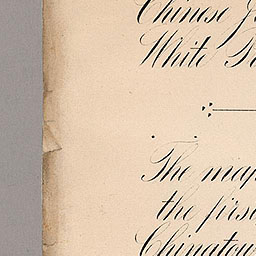 Chinese
White
The map
the first
Chinatow